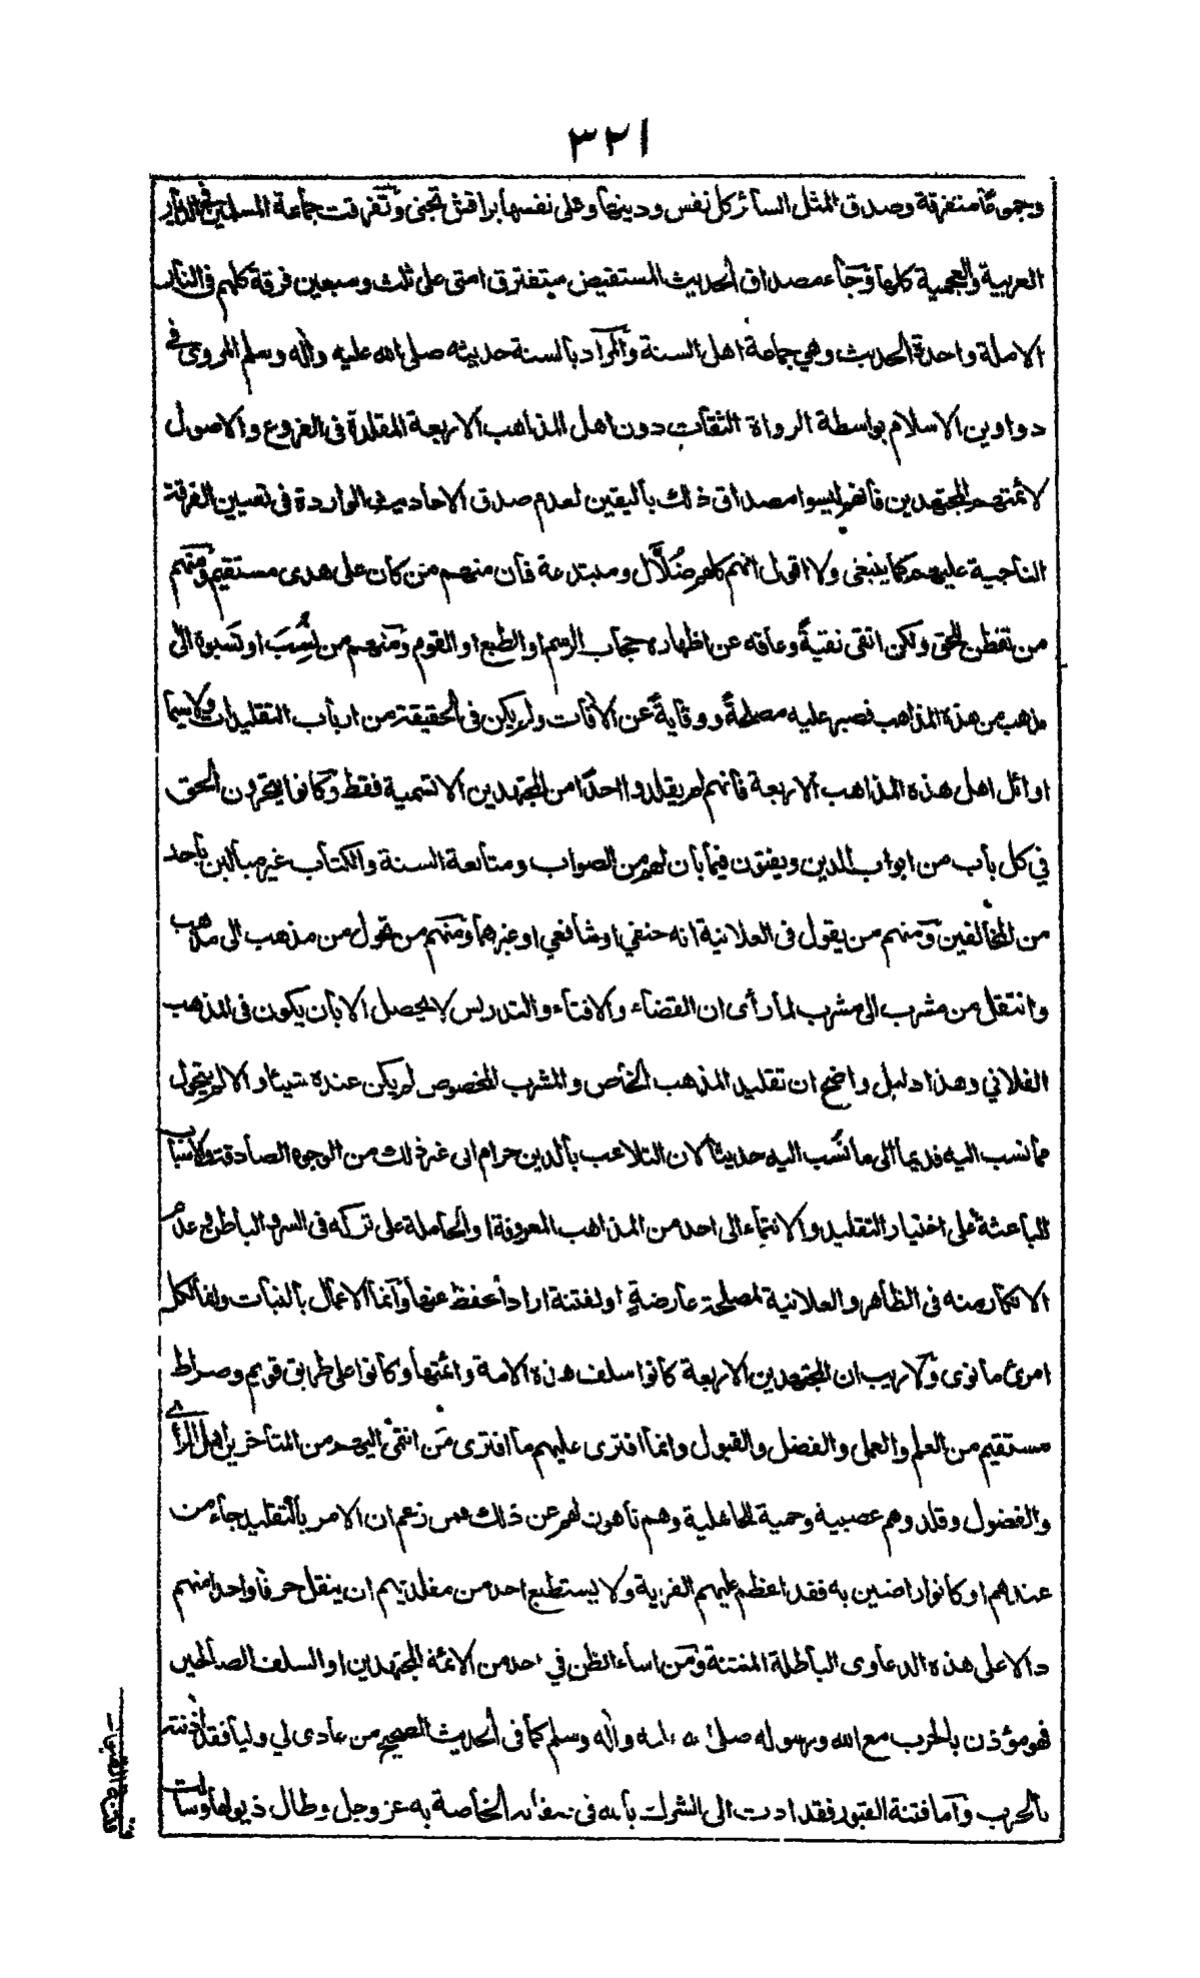 ٣٢١
وجموعًا متفرقة وصدق المثل السائر كل نفس ودينها وعلى نفسها براقش تجنى وتفرقت جماعة المسلمين في الديار
العربية والعجمية كلها وجاء مصداق الحديث المستفيض ستفترق امتى على ثلث وسبعين فرقة كلهم فى النار
الاملة واحدة الحديث وهي جماعة اهل السنة والمراد بالسنة حديثه صلى الله عليه واله وسلم المروى في
دواوين الاسلام بواسطة الرواة الثقات دون اهل المذاهب الاربعة المقلدة فى الفروع والاصول
لائمتهم المجتهدين فانهم ليسوا مصداق ذلك باليقين لعدم صدق الاحاديث الواردة فى تعيين الفرقة
الناجية عليهم كما ينبغى ولا اقول انهم كلهم ضُلَّال ومبتدعة فان منهم من كان على هدى مستقيم ومنهم
من تفطن الحق ولكن اتقى تقيةً وعاقه عن اظهاره حجاب الرسم او الطبع او القوم ومنهم من نُسِبَ او نسبوه الى
مذهب من هذه المذاهب فصبر عليه مصلحةً ووقايةً عن الأفات ولم يكن فى الحقيقة من ارباب التقليدات ولاسيما
اوائل اهل هذه المذاهب الاربعة فانهم لم يقلدوا احدًا من المجتهدين الا تسمية فقط وكانوا يتحرون الحق
في كل باب من ابواب الدين ويفتون فيما بان لهم من الصواب ومتابعة السنة والكتاب غير مبالين باحد
من المخالفين ومنهم من يقول فى العلانية انه حنفي او شافعي او غيرهما ومنهم من تحول من مذهب الى مذهب
وانتقل من مشرب الى مشرب لما رأى ان القضاء والافتاء والتدريس لا يحصل الا بان يكون فى المذهب
الفلاني وهذا دليل واضح ان تقليد المذهب الخاص والمشرب المخصوص لم يكن عنده شيئا والا لم يتحول
مما نسب اليه قديما الى ما نُسب اليه حديثا لان التلاعب بالدين حرام الى غير ذلك من الوجوه الصادقة والاسباب
الباعثة على اختيار التقليد والانتماء الى احد من المذاهب المعروفة او الحاملة على تركه فى السر و الباطن وعدم
الانكار منه فى الظاهر والعلانية لمصلحة عارضةٍ او لفتنة اراد أحفظ عنها وانما الاعمال بالنيات وانما لكل
امرئ ما نوى ولا ريب ان المجتهدين الاربعة كانوا سلف هذه الامة وائمتها وكانوا على طريق قويم وصراط
مستقيم من العلم والعمل والفضل والقبول وانما افترى عليهم ما افترى مَن انتمى اليهم من المتأخرين اهل الرأى
والفضول وقلدوهم عصبية وحمية للجاهلية وهم ناهون لهم عن ذلك فمن زعم ان الامر بالتقليد جاء من
عندهم او كانوا راضين به فقد اعظم عليهم الفرية ولا يستطيع احد من مقلديهم ان ينقل حرفا واحدا منهم
دالا على هذه الدعاوى الباطلة المنتنة ومن اساء الظن في احد من الائمة المجتهدين او السلف الصالحين
فهو مؤذن بالحرب مع الله ورسوله صلى الله عليه واله وسلم كما فى الحديث الصحيح من عادى لي وليا فقد اذنته
بالحرب واما فتنة القبور فقد ادت الى الشرك بالله فى صفاته الخاصة به عز وجل وطال ذيولها وسالت
فتنة القبور